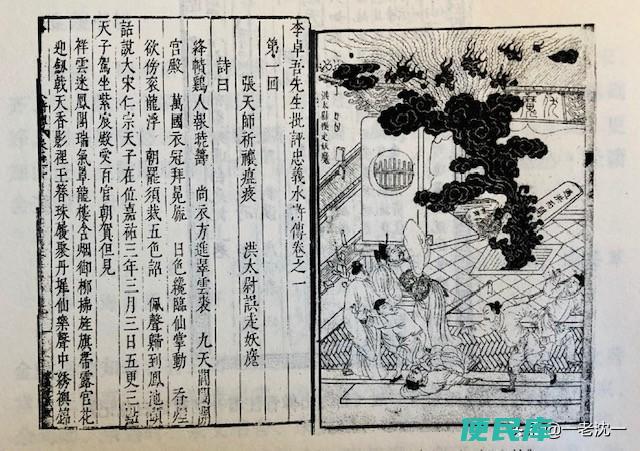 李卓吾先生批評忠義水滸傳卷之一
第一回
張天師祈禳瘟疫 洪太尉誤走妖魔
詩曰
絳幘雞人報曉籌 尚衣方進翠雲裘 九天閶闔開
宮殿 萬國衣冠拜冕旒 日色纔臨仙掌動 香煙
欲傍袞龍浮 朝罷須裁五色詔 佩聲歸到鳳池頭
話說大宋仁宗天子在位嘉祐三年三月三日五更三點
天子駕坐紫宸殿受百官朝賀但見
祥雲迷鳳閣瑞氣罩龍樓含烟御柳拂旌旗帶露宮花
迎劍戟天香影裡玉簪珠履聚丹墀仙樂聲中綉襖錦
洪太尉誤走妖魔
伏魔
遇洪而開
便民库
@一老沈一